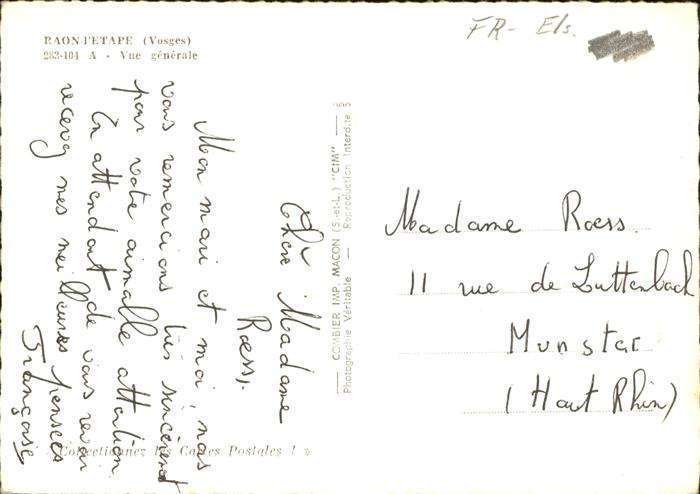 RAON L'ETAPE (Vosges)
263-104 A - Vue générale
FR- Els.
Chère Madame
Roess.
Mon mari et moi, nous
vous remercions très sincèrement
pour votre aimable attention
En attendant de vous revoir
recevez mes meilleures pensées
Françoise
COMBIER IMP. MACON (S.-et-L.) "CIM"
Photographie Véritable — Reproduction Interdite
Madame Roess.
11 rue de Luttenbach
Munster
(Haut Rhin)
Collectionnez les Cartes Postales ! »